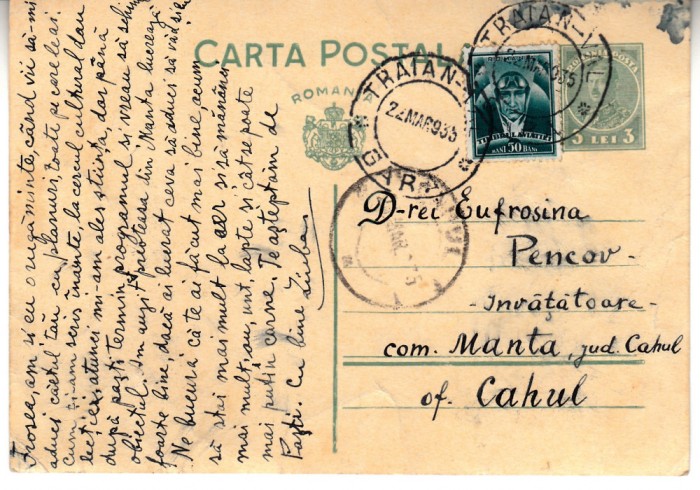 CARTA POSTALA
ROMANIA
TRAIAN-VAL
22 MAR 935
TRAIAN-VAL
MAR 935
TIMBRUL AVIAȚIEI
BANI 50 BANI
ROMANIA POSTA
3 LEI 3
D-rei Eufrosina
Pencov-
-Învățătoare-
com. Manta, jud. Cahul
of. Cahul
Frosea, am și eu o rugăminte, când vii să-mi
aduci caetul tău cu planuri, toate pe care le ai.
cum ți-am scris înainte, la cercul cultural dau
lecție, atunci mi-am ales știința, dar până
după Paști termin programul și vreau să schimb
obiectul. Am auzit prietena din Manta lucrează
foarte bine, dacă ai lucrat ceva să aduci să văd și eu
Ne bucură că te ai făcut mai bine, acum
să stai mai mult la aer și să mănânci
mai mult, ou, unt, lapte și cât se poate
mai puțin carne. Te așteptăm de
Paști. Cu bine